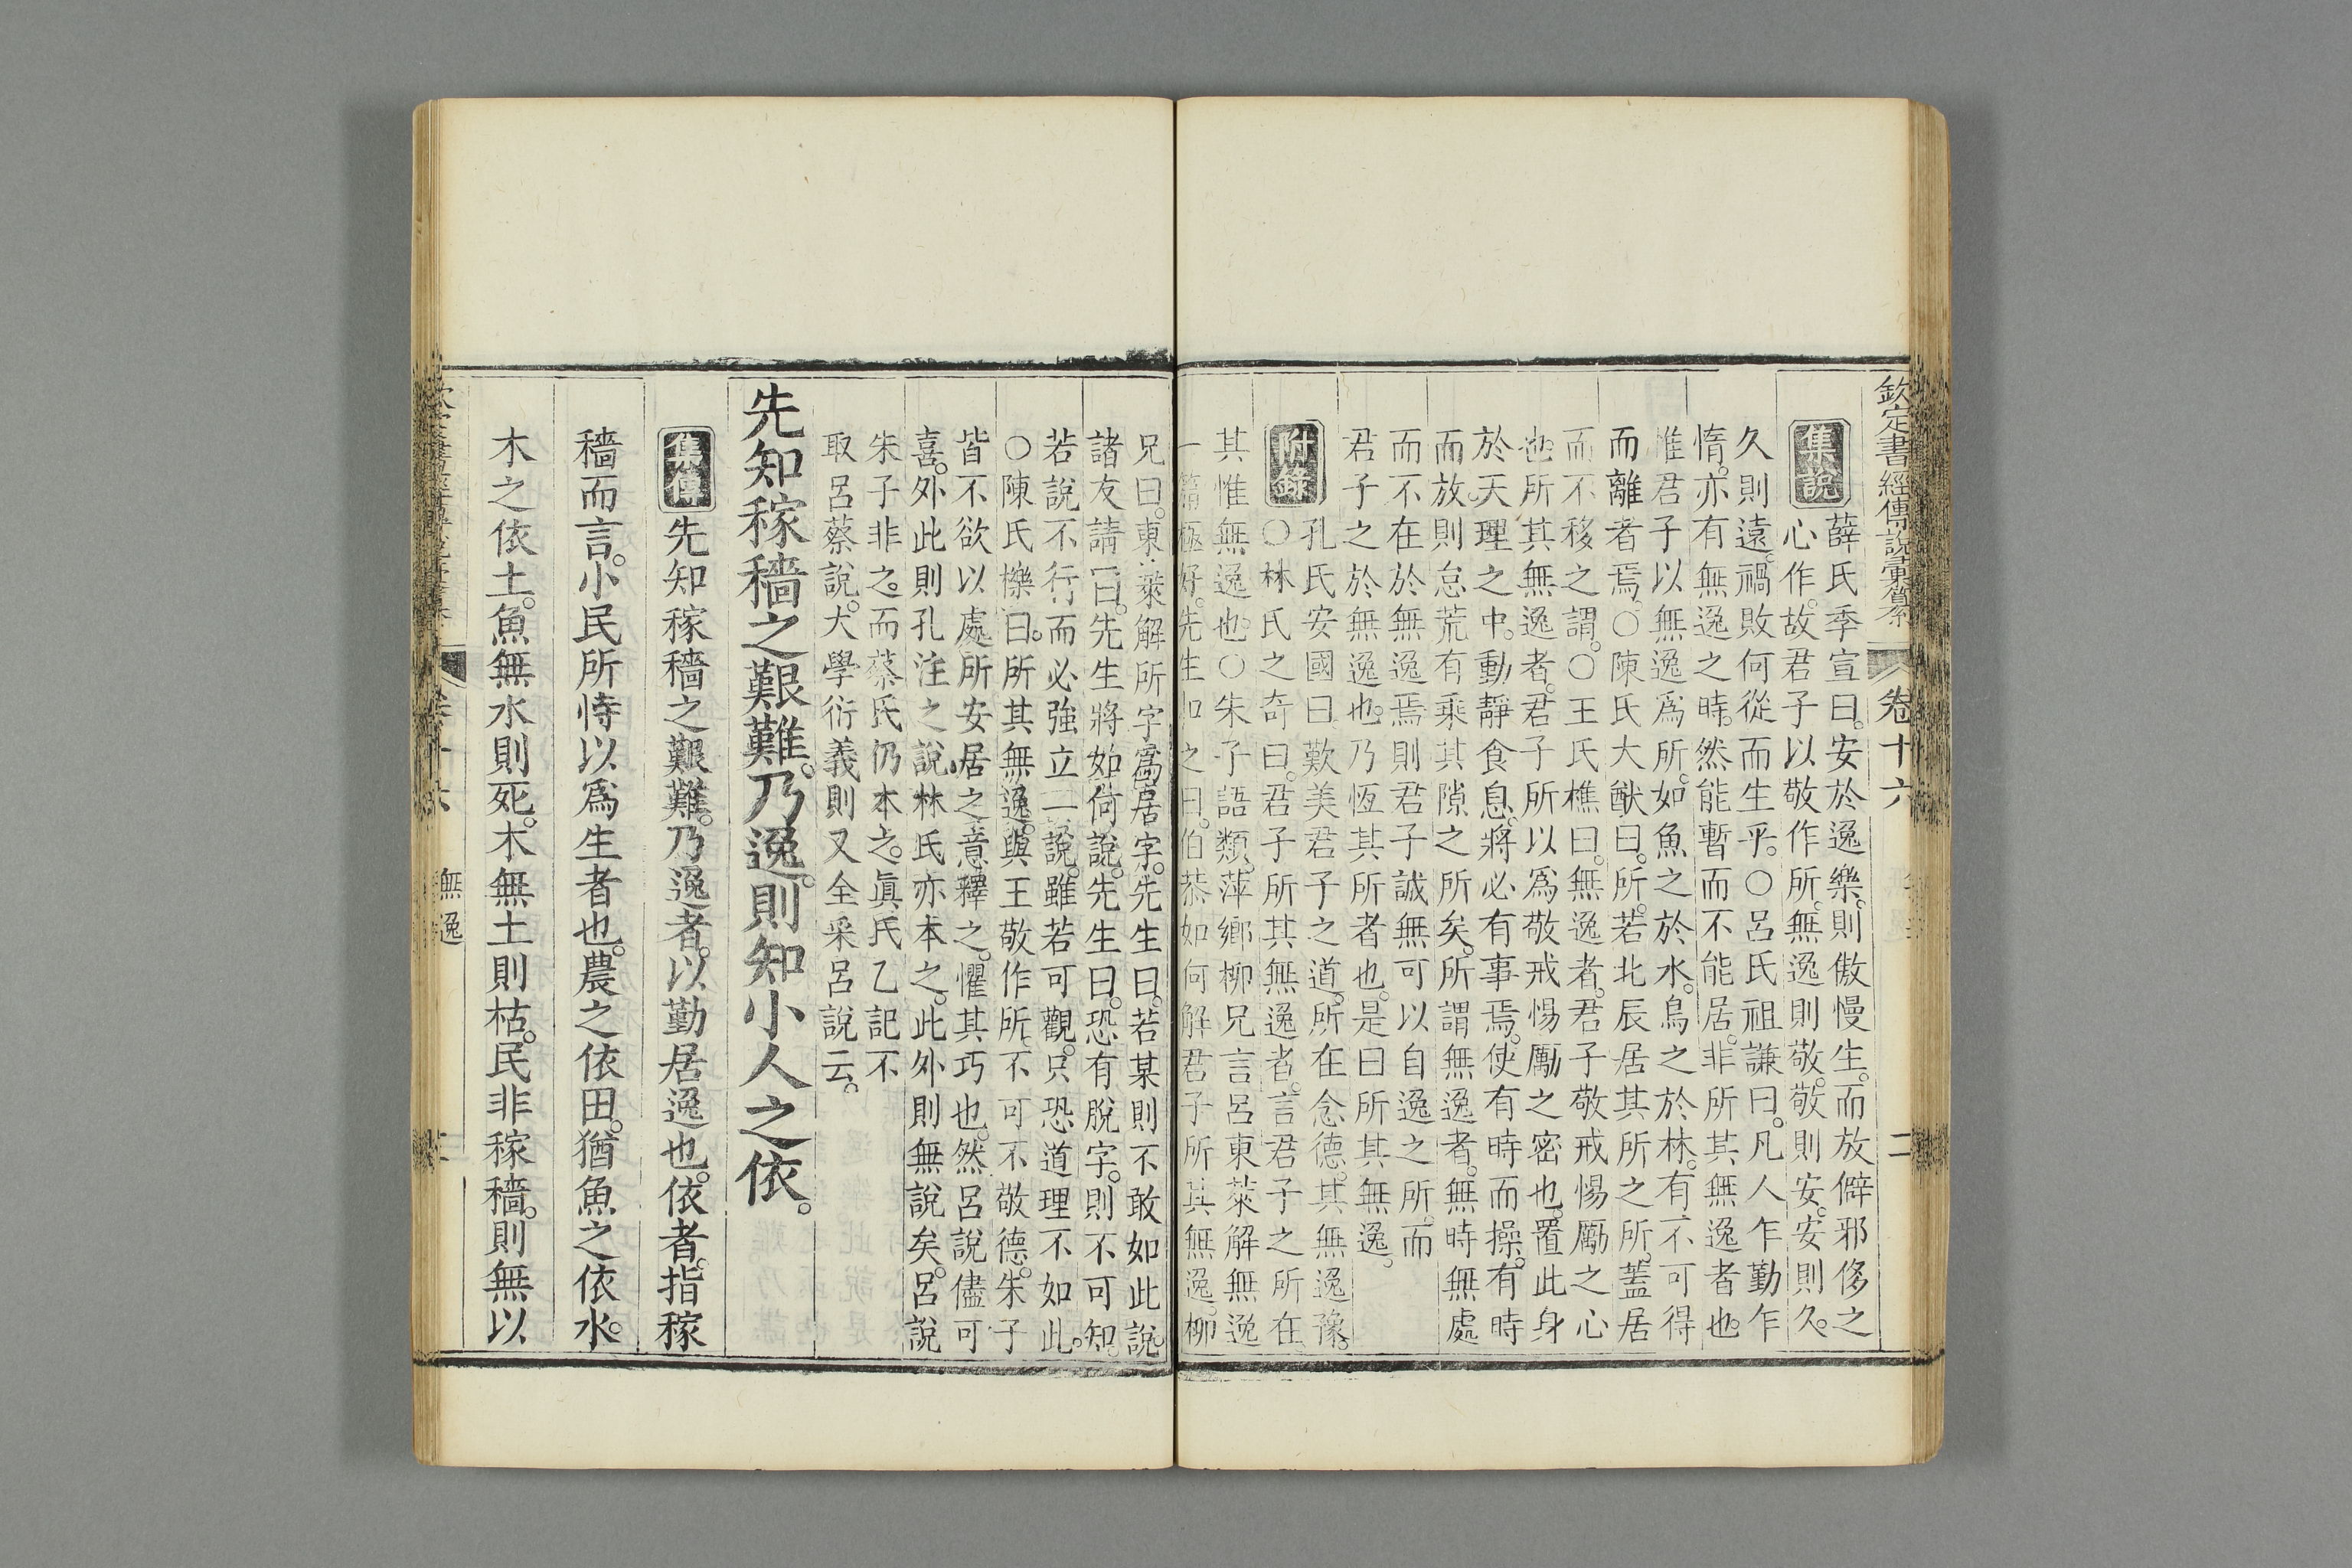 欽定書經傳說彙纂 卷十六 二
集說 薛氏季宣曰。安於逸樂。則傲慢生。而放僻邪侈之
心作。故君子以敬作所。無逸則敬。敬則安。安則久。
久則遠。禍敗何從而生乎。○呂氏祖謙曰。凡人乍勤乍
惰。亦有無逸之時。然能暫而不能居。非所其無逸者也。
惟君子以無逸爲所。如魚之於水。鳥之於林。有不可得
而離者焉。○陳氏大猷曰。所。若北辰居其所之所。蓋居
而不移之謂。○王氏樵曰。無逸者。君子敬戒惕厲之心
也。所其無逸者。君子所以爲敬戒惕勵之密也。置此身
於天理之中。動靜食息。將必有事焉。使有時而操。有時
而放。則怠荒有乘其隙之所矣。所謂無逸者。無時無處
而不在於無逸焉。則君子誠無可以自逸之所。而
君子之於無逸也。乃恆其所者也。是曰所其無逸。
附錄 孔氏安國曰。歎美君子之道。所在念德。其無逸豫。
○林氏之奇曰。君子所其無逸者。言君子之所在。
其惟無逸也。○朱子語類。萍鄉柳兄言呂東萊解無逸
一篇極好。先生扣之曰。伯恭如何解君子所其無逸。柳
兄曰。東萊解所字爲居字。先生曰。若某則不敢如此說。
諸友請曰。先生將如何說。先生曰。恐有脫字。則不可知。
若說不行而必強立一說。雖若可觀。只恐道理不如此。
○陳氏櫟曰。所其無逸。與王敬作所。不可不敬德。朱子
皆不欲以處所安居之意釋之。懼其巧也。然呂說儘可
喜。外此則孔注之說。林氏亦本之。此外則無說矣。呂說
朱子非之。而蔡氏仍本之。眞氏乙記不
取呂蔡說。大學衍義則又全采呂說云。
先知稼穡之艱難。乃逸。則知小人之依。
集傳 先知稼穡之艱難。乃逸者。以勤居逸也。依者。指稼
穡而言。小民所恃以爲生者也。農之依田。猶魚之依水。
木之依土。魚無水則死。木無土則枯。民非稼穡。則無以
無逸